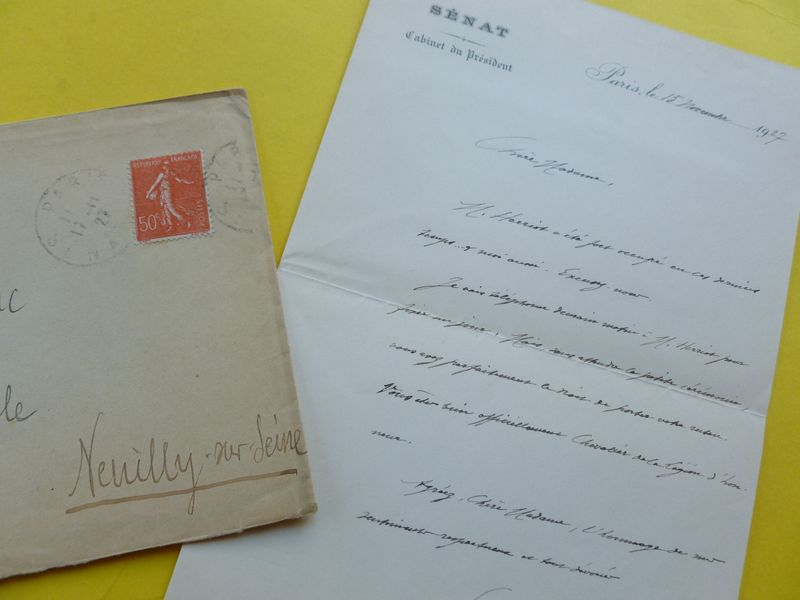 SÉNAT
Cabinet du Président
Paris, le 15 Novembre 1927
Chère Madame,
M. Herriot a été fort occupé en ces derniers
temps et moi aussi. Excusez-nous.
Je vais téléphoner demain matin à M. Herriot pour
fixer un jour. Mais, sans attendre la petite cérémonie
vous avez parfaitement le droit de porter votre ruban.
Vous êtes bien officiellement Chevalier de la Légion d'hon
neur.
Agréez, Chère Madame, l'hommage de mes
sentiments respectueux et tout dévoués
RÉPUBLIQUE FRANÇAISE
50c
POSTES
PARIS
17 - 11
27
le
Neuilly-sur-Seine